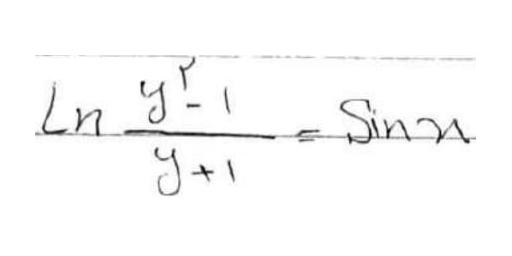 Ln (y²-1)/(y+1) = Sin x